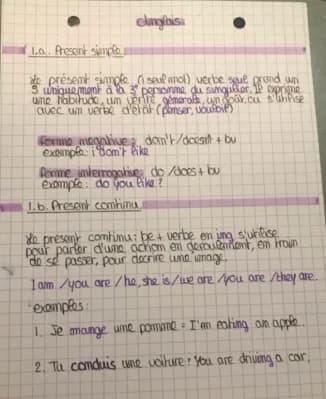 Anglais:
1.a. Present simple
Le présent simple (1 seul mot) verbe seul prend un
S uniquement à la 3e personne du singulier. Il exprime
une habitude, un vérité générale, un goût, ou s'utilise
avec un verbe d'état (penser, vouloir)
forme négative: don't/doesn't + bv
exemple: i don't like
forme interrogative: do/does + bv
exemple: do you like?
1.b. Présent continu
Le présent continu: be + verbe en ing s'utilise
pour parler d'une action en déroulement, en train
de se passer, pour décrire une image.
I am /you are /he, she is/we are /you are /they are.
exemples:
1. Je mange une pomme = I'm eating an apple.
2. Tu conduis une voiture = You are driving a car.